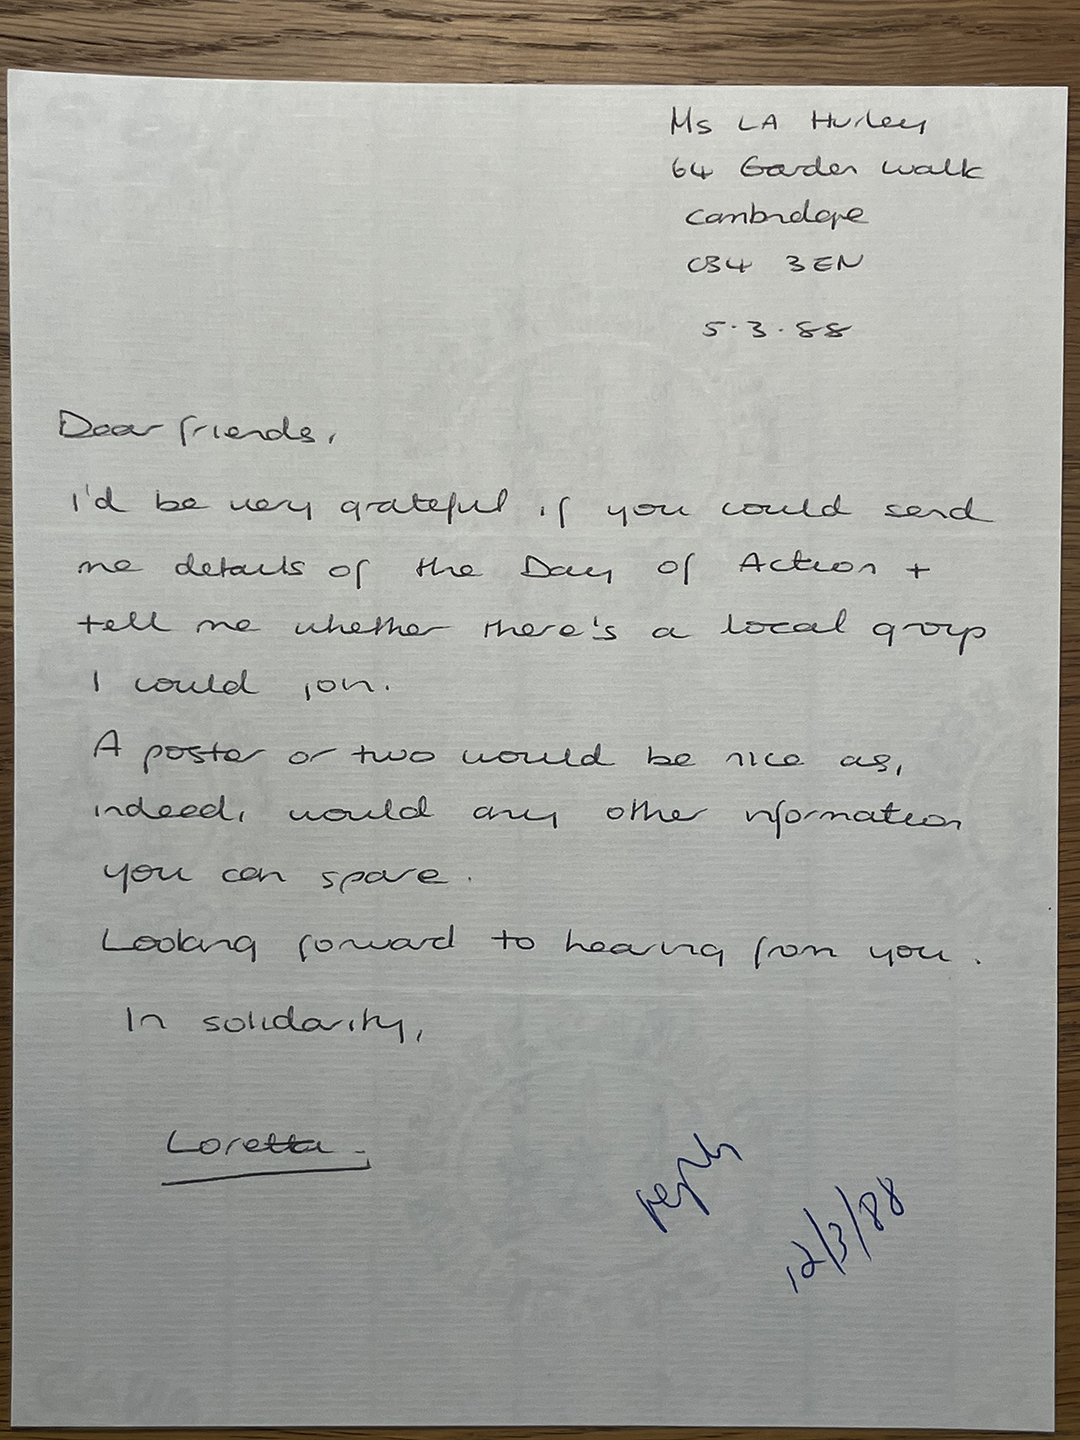 Ms LA Hurley
64 Garden Walk
Cambridge
CB4 3EN
5.3.88
Dear friends,
I'd be very grateful if you could send
me details of the Day of Action +
tell me whether there's a local group
I could join.
A poster or two would be nice as,
indeed, would any other information
you can spare.
Looking forward to hearing from you.
In solidarity,
Loretta.
reply
12/3/88